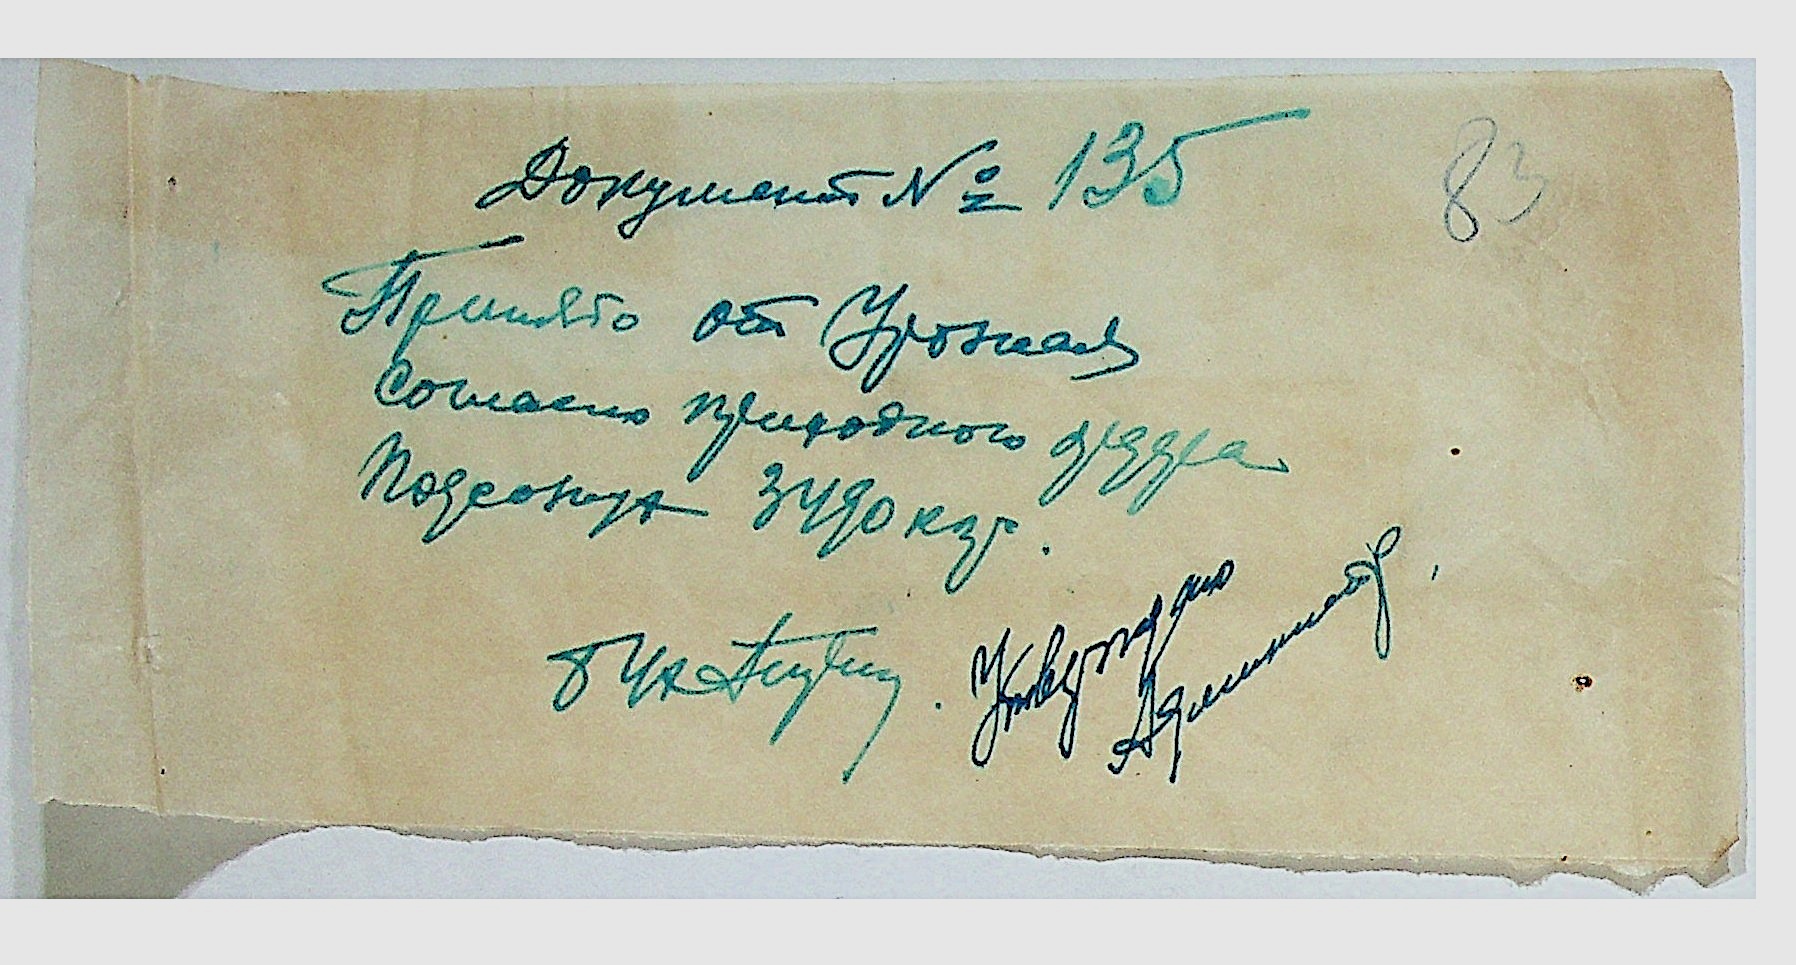 Документ № 135
83
Принято от Урожая
Согласно приходного ордера
Подсолнуха 3490 кгр.
бух
Утверждаю